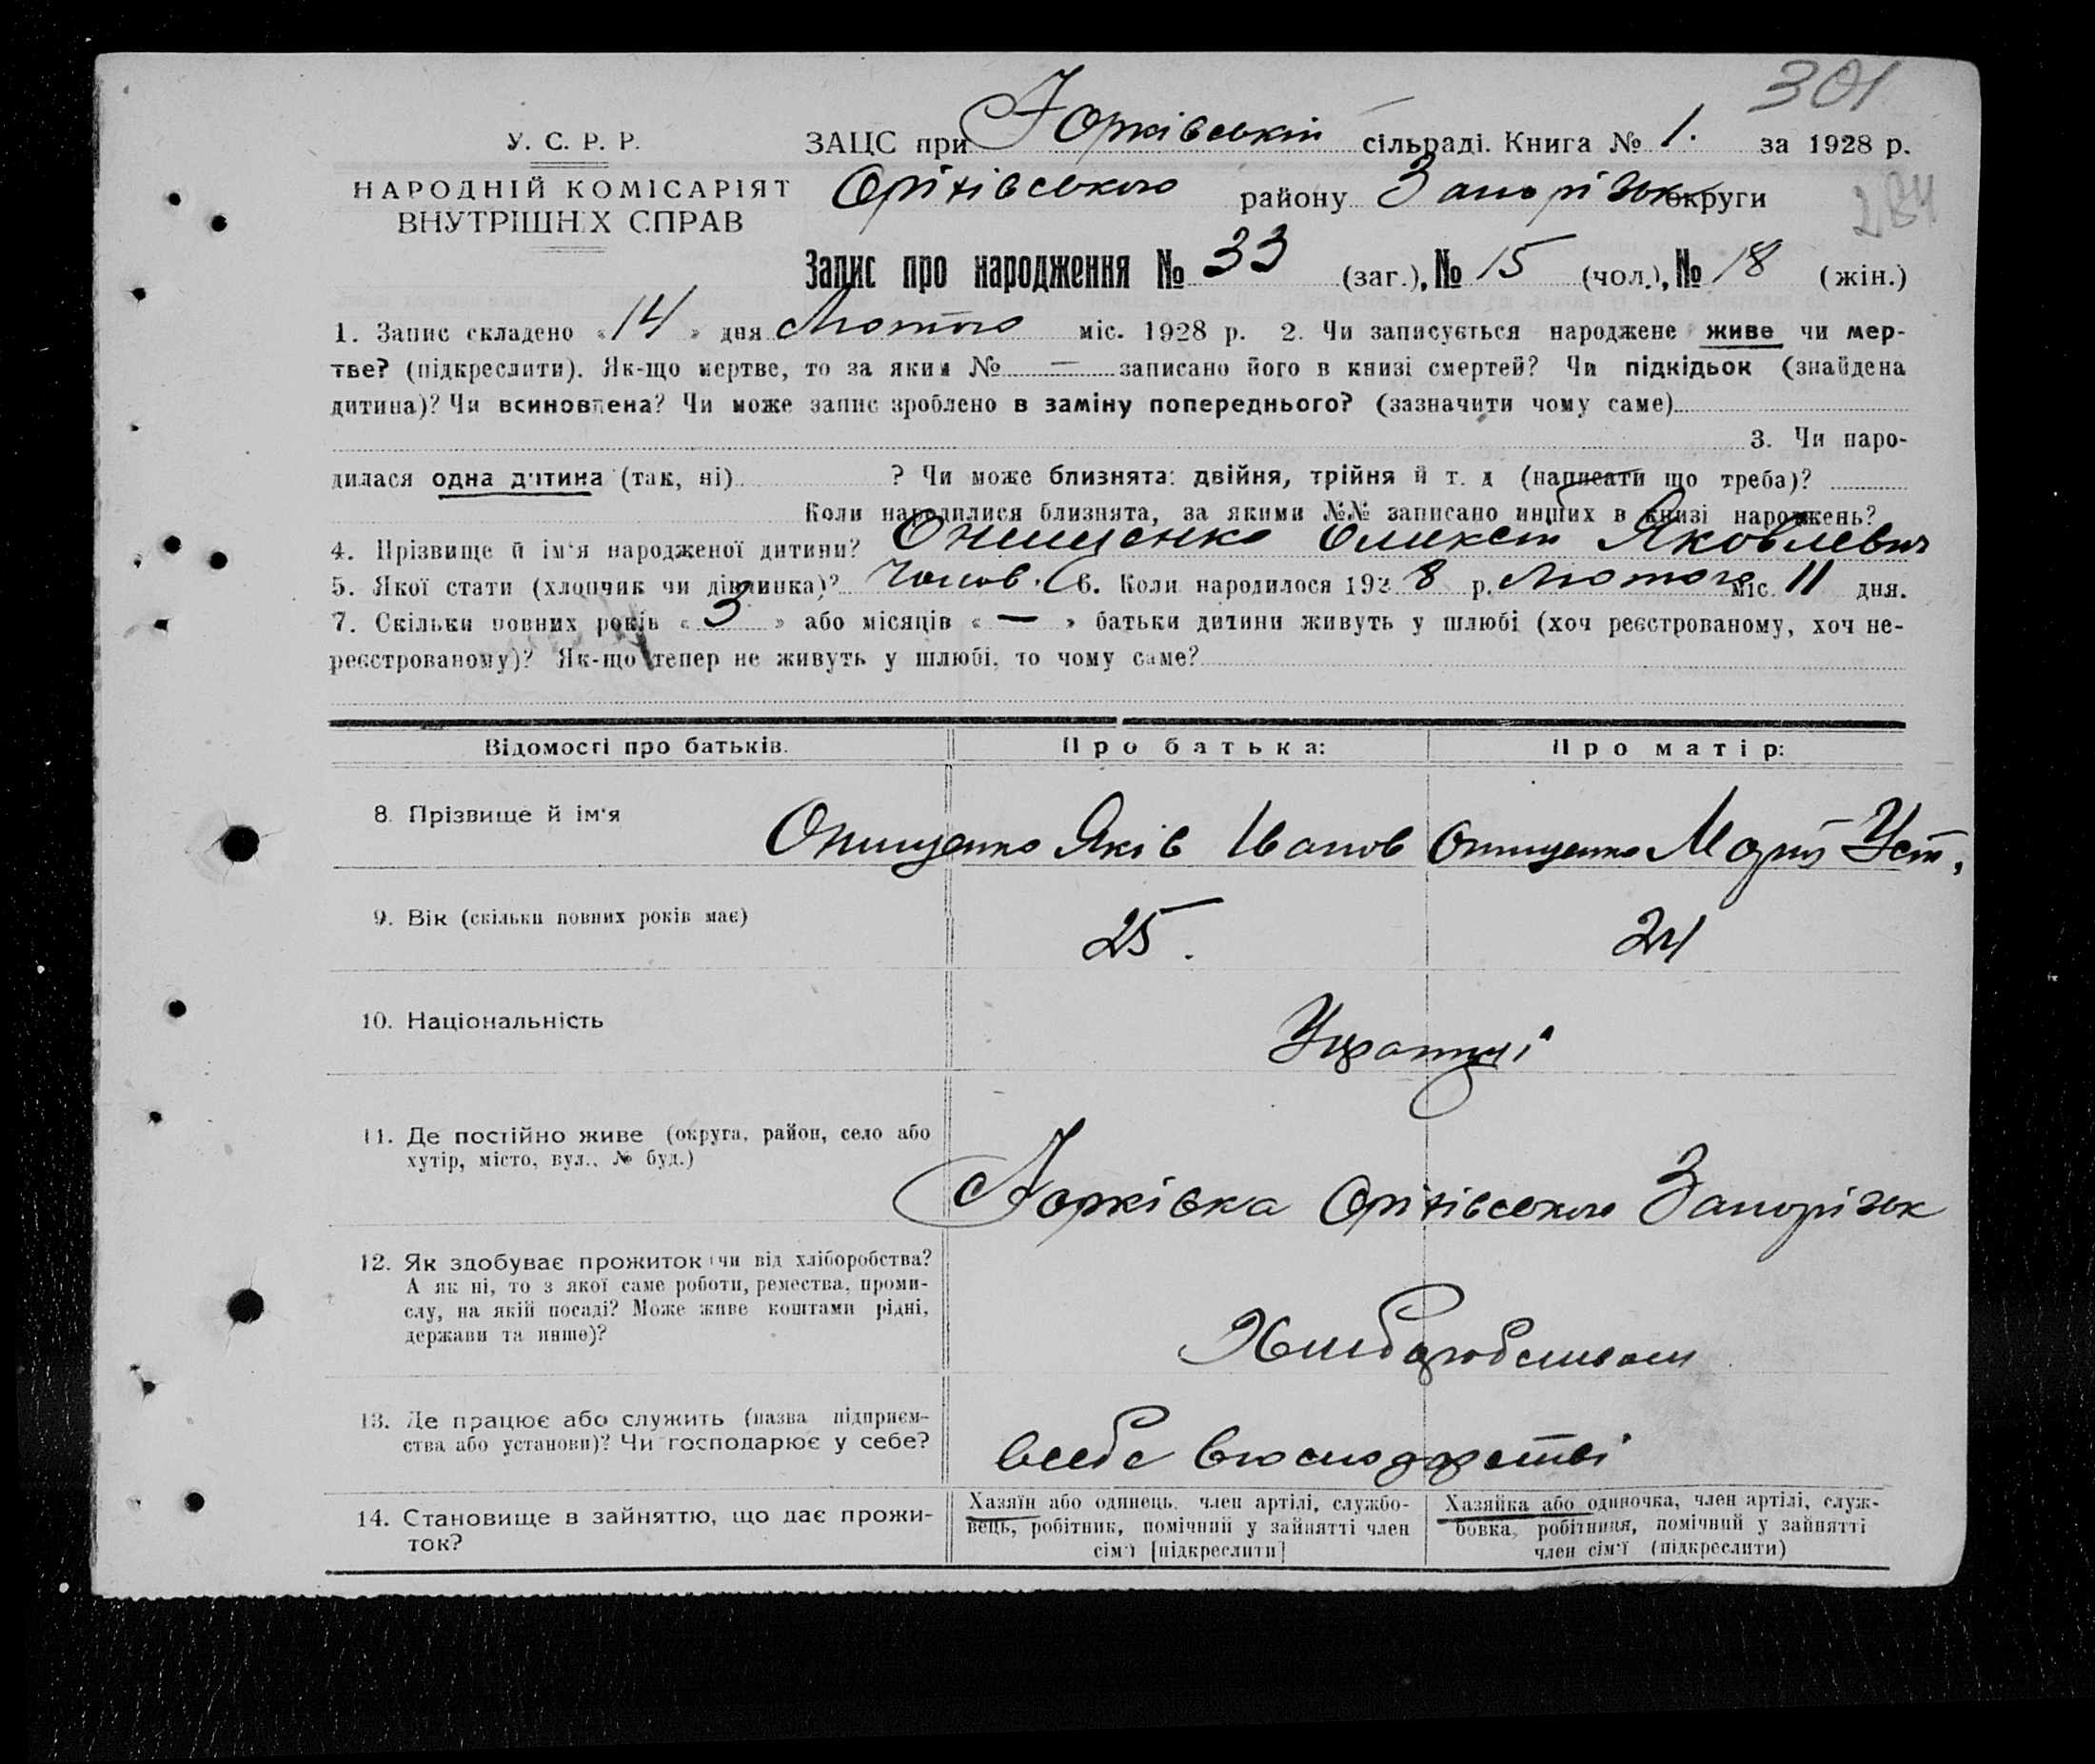 301
У. С. Р. Р.
ЗАЦС при Юрківській сільраді. Книга № 1. за 1928 р.
НАРОДНІЙ КОМІСАРІЯТ
ВНУТРІШНІХ СПРАВ
Оріхівського району Запорізьк округи
284
Запис про народження № 33 (заг.), № 15 (чол.), № 18 (жін.)
1. Запис складено «14» дня Лютого міс. 1928 р. 2. Чи записується народжене живе чи мер-
тве? (підкреслити). Як-що мертве, то за яким № — записано його в книзі смертей? Чи підкідьок (знайдена
дитина)? Чи всиновлена? Чи може запис зроблено в заміну попереднього? (зазначити чому саме)
3. Чи наро-
дилася одна дитина (так, ні) ? Чи може близнята: двійня, трійня й т. д (написати що треба)?
Коли народилися близнята, за якими №№ записано инших в книзі народжень?
4. Прізвище й ім'я народженої дитини? Онищенко Яковлевич
5. Якої стати (хлопчик чи дівчинка)? Чолов. 6. Коли народилося 1928 р. Лютого міс. 11 дня.
7. Скільки повних років «3» або місяців «—» батьки дитини живуть у шлюбі (хоч реєстрованому, хоч не-
реєстрованому)? Як-що тепер не живуть у шлюбі, то чому саме?
Відомості про батьків.
Про батька:
Про матір:
8. Прізвище й ім'я
Онищенко Яків Іванов
Онищенко Марія Уст.
9. Вік (скільки повних років має)
25.
24
10. Національність
Українці
11. Де постійно живе (округа, район, село або
хутір, місто, вул., № буд.)
Юрківка Оріхівського Запорізьк
12. Як здобуває прожиток (чи від хліборобства?
А як ні, то з якої саме роботи, ремества, проми-
слу, на якій посаді? Може живе коштами рідні,
держави та инше)?
Хлиборобством
13. Де працює або служить (назва підприєм-
ства або установи)? Чи господарює у себе?
всебе вгосподарстві
14. Становище в зайняттю, що дає прожи-
ток?
Хазяїн або одинець, член артілі, службо-
вець, робітник, помічний у зайнятті член
сім'ї [підкреслити]
Хазяйка або одиночка, член артілі, служ-
бовка, робітниця, помічний у зайнятті
член сім'ї (підкреслити)